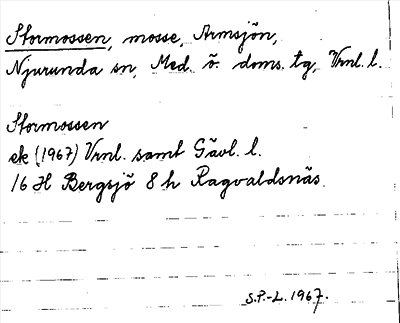 Stormossen, mosse, Armsjön,
Njurunda sn, Med. ö. doms. tg, Vrnl. l.
Stormossen
ek (1967) Vrnl. samt Gävl. l.
16 H Bergsjö 8 h Ragvaldsnäs.
S.P.-L. 1967.